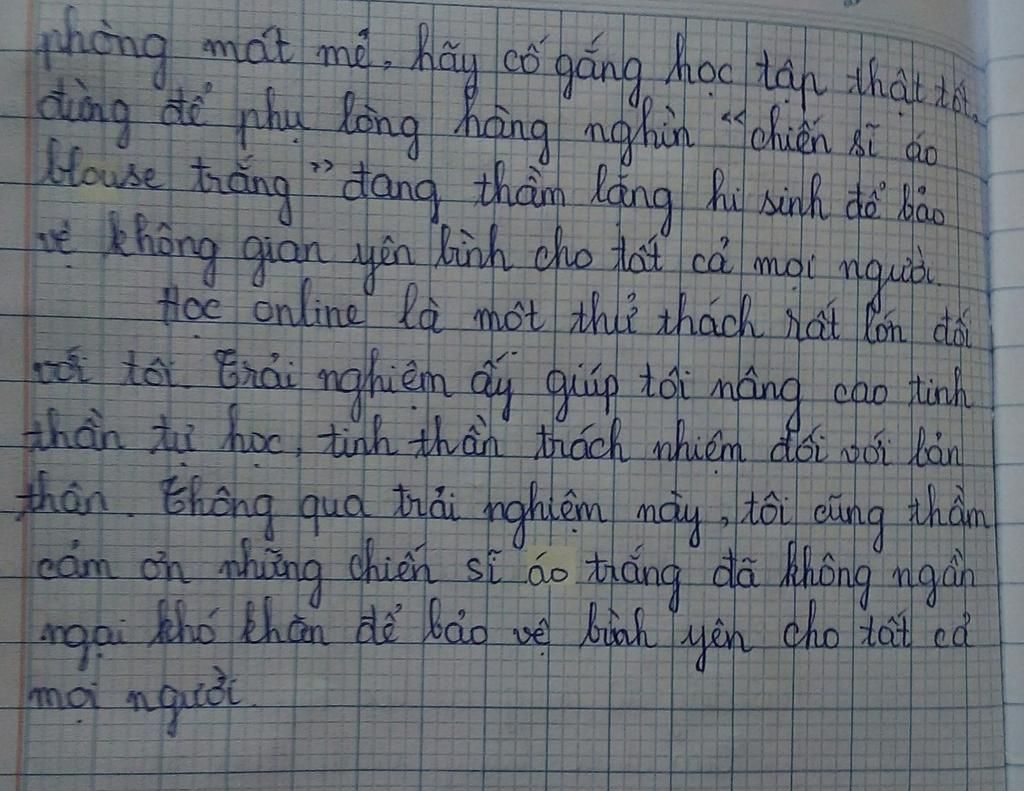 phòng mát mẻ, hãy cố gắng học tập thật tốt,
đừng để phụ lòng hàng nghìn "chiến sĩ áo
blouse trắng" đang thầm lặng hi sinh để bảo
vệ không gian yên bình cho tất cả mọi người.
Học online là một thử thách rất lớn đối
với tôi. Trải nghiệm ấy giúp tôi nâng cao tinh
thần tự học, tinh thần trách nhiệm đối với bản
thân. Thông qua trải nghiệm này, tôi cũng thầm
cảm ơn những chiến sĩ áo trắng đã không ngần
ngại khó khăn để bảo vệ bình yên cho tất cả
mọi người.